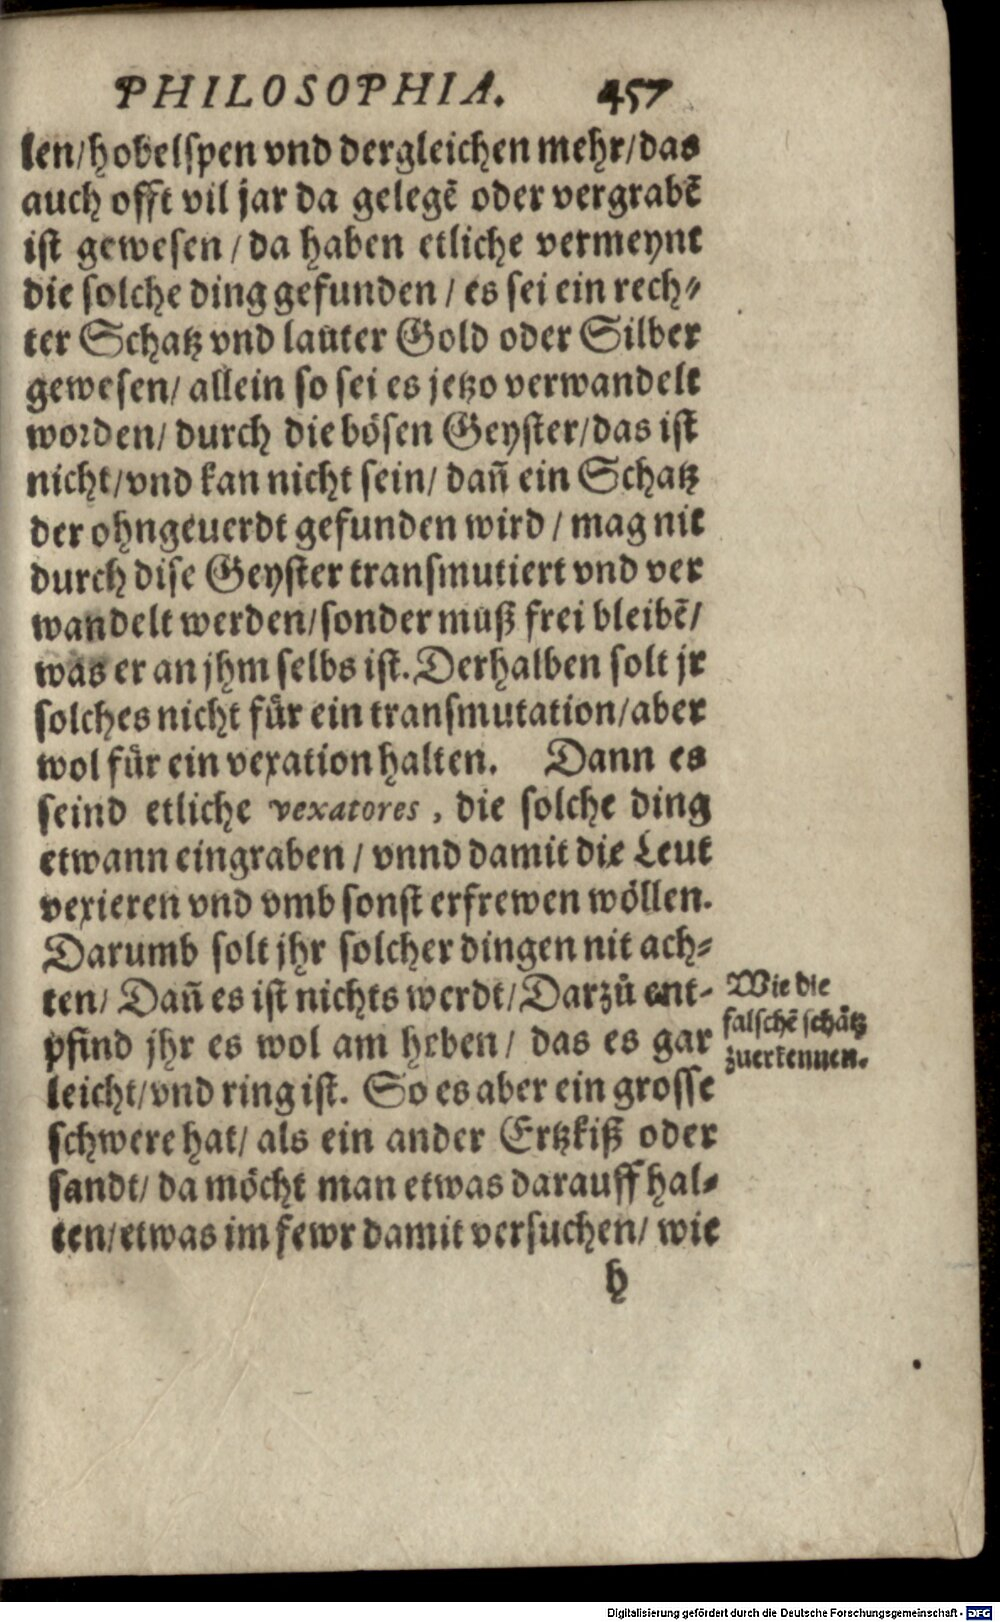 PHILOSOPHIA. 457
len/hobelspen vnd dergleichen mehr/das
auch offt vil jar da gelegē oder vergrabē
ist gewesen / da haben etliche vermeynt
die solche ding gefunden / es sei ein rech⸗
ter Schatz vnd lauter Gold oder Silber
gewesen/ allein so sei es jetzo verwandelt
worden/ durch die bösen Geyster/das ist
nicht/vnd kan nicht sein/ dañ ein Schatz
der ohngeuerdt gefunden wird / mag nit
durch dise Geyster transmutiert vnd ver
wandelt werden/sonder muß frei bleibē/
was er an jhm selbs ist. Derhalben solt jr
solches nicht für ein transmutation/aber
wol für ein vexation halten. Dann es
seind etliche vexatores, die solche ding
etwann eingraben / vnnd damit die Leut
vexieren vnd vmb sonst erfrewen wöllen.
Darumb solt jhr solcher dingen nit ach⸗
ten/ Dañ es ist nichts werdt/ Darzů ent-
pfind jhr es wol am heben/ das es gar
leicht/vnd ring ist. So es aber ein grosse
schwere hat/ als ein ander Ertzkiß oder
sandt/ da möcht man etwas darauff hal⸗
ten/etwas im fewr damit versuchen/ wie
h
Wie die
falschē schätz
zuerkennen.
Digitalisierung gefördert durch die Deutsche Forschungsgemeinschaft - DFG